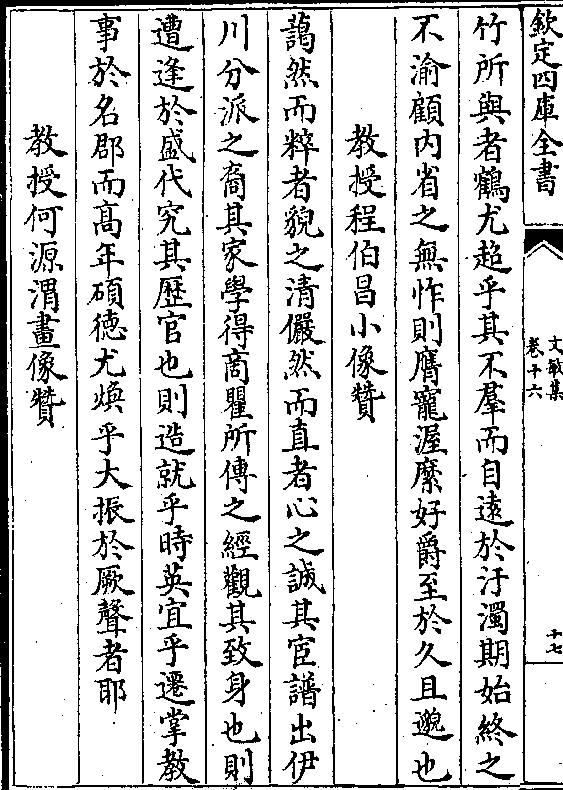 欽定四庫全書
文敏集
卷十六
十七
竹所與者鶴尤超乎其不羣而自遠於汙濁期始終之
不渝顧内省之無怍則膺寵渥縻好爵至於久且邈也
教授程伯昌小像贊
藹然而粹者貌之清儼然而直者心之誠其宦譜出伊
川分派之裔其家學得商瞿所傳之經觀其致身也則
遭逢於盛代究其歴官也則造就乎時英宜乎遷掌教
事於名郡而髙年碩德尤煥乎大振於厥聲者耶
教授何源渭畫像贊